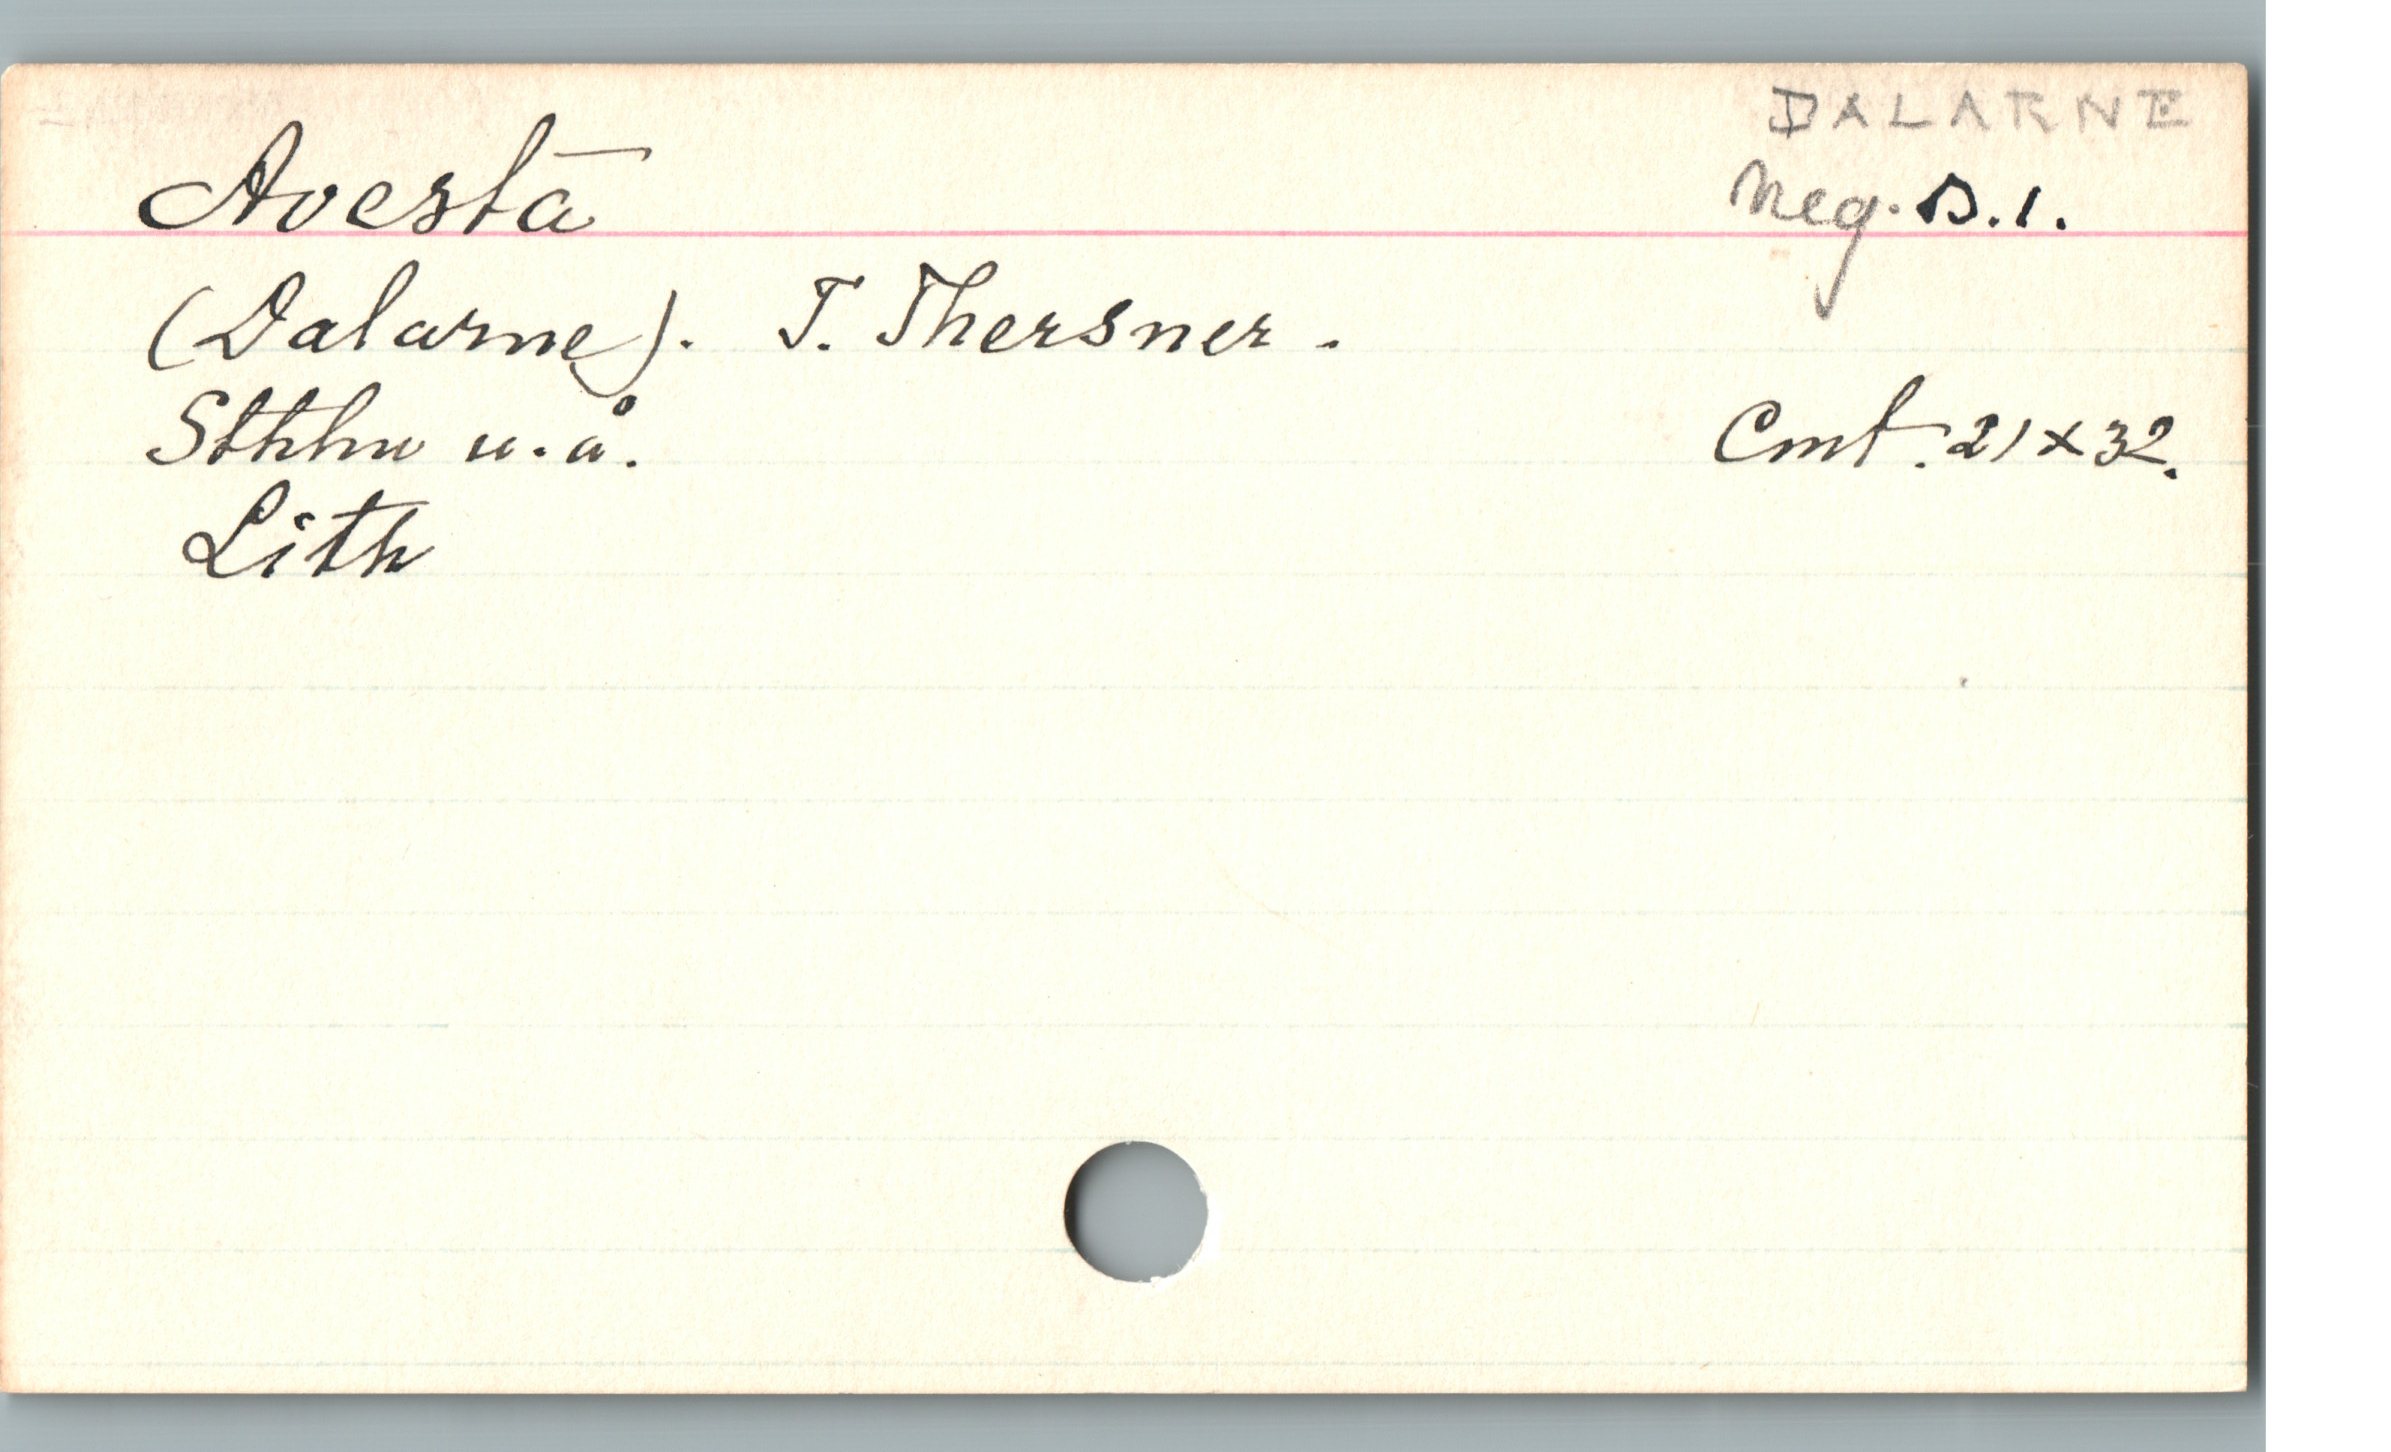 DALARNE
Avesta Neg. D.1.
(Dalarne). T. Thersner.
Sthlm u.å. Cmt. 21 x 32.
Lith